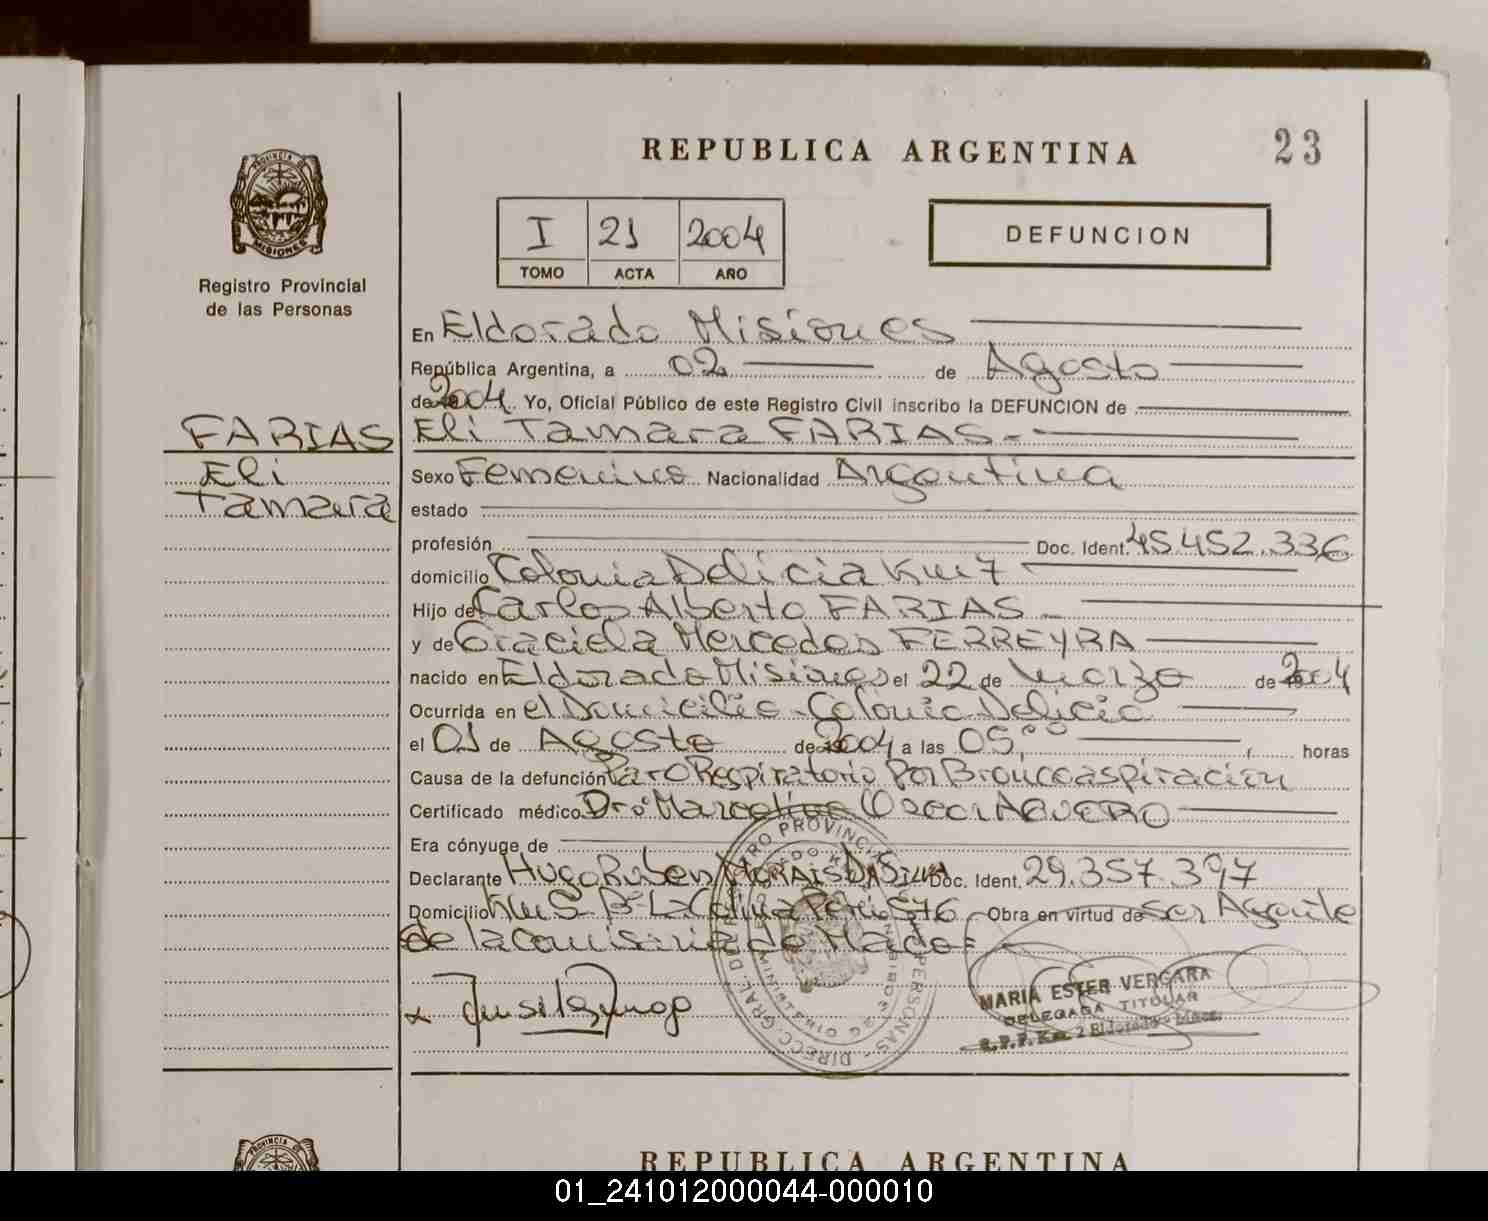 REPUBLICA ARGENTINA
23
I 21 2004
TOMO ACTA AÑO
DEFUNCION
PROVINCIA DE
MISIONES
Registro Provincial
de las Personas
FARIAS
Eli
Tamara
En Eldorado Misiones
República Argentina, a 02 de Agosto
de 2004. Yo, Oficial Público de este Registro Civil inscribo la DEFUNCION de
Eli Tamara FARIAS.-
Sexo Femenino Nacionalidad Argentina
estado
profesión Doc. Ident. 45.452.336
domicilio Colonia Delicia Km 7
Hijo de Carlos Alberto FARIAS
y de Graciela Mercedes FERREYRA
nacido en Eldorado Misiones el 22 de Marzo de 2004
Ocurrida en el Domicilio - Colonia Delicia
el 01 de Agosto de 2004 a las 05,00 horas
Causa de la defunción Paro Respiratorio Por Broncoaspiracion
Certificado médico Dro Marcelino Oscar AGUERO
Era cónyuge de
Declarante Hugo Ruben MORAIS DA SILVA Doc. Ident. 29.357.397
Domicilio Km 5 Bº La Colina Perú 576 Obra en virtud de ser Agente
de la comisaria de Mado
MARIA ESTER VERGARA
DELEGADA TITULAR
R.P.P. Km. 2 Eldorado - Mnes.
REPUBLICA ARGENTINA
PROVINCIA DE
01_241012000044-000010